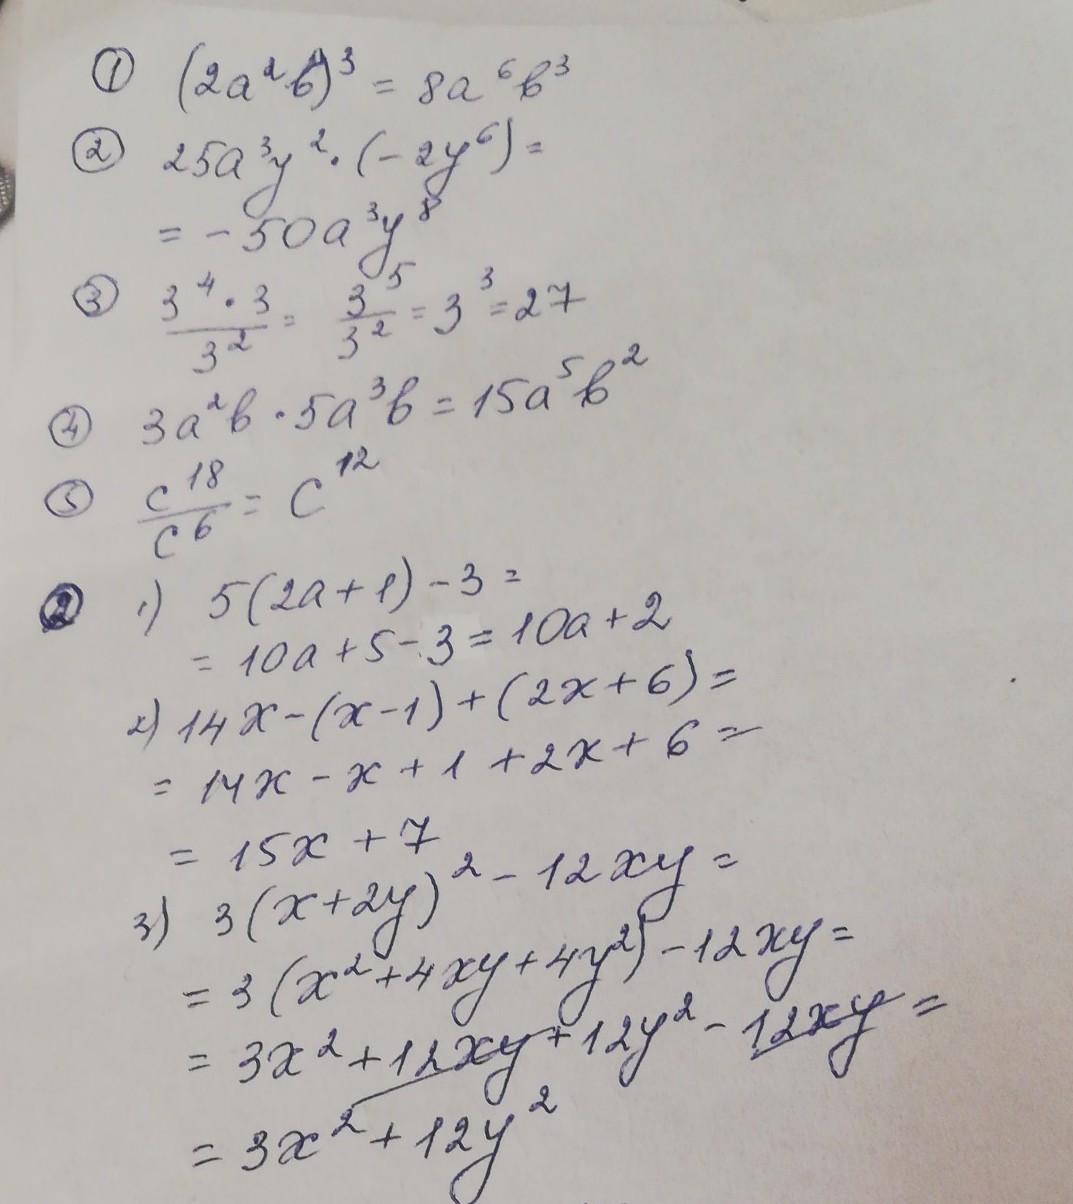 ① (2a²b)³ = 8a⁶b³
② 25a³y²·(-2y⁶) =
= -50a³y⁸
③ (3⁴·3)/3² = 3⁵/3² = 3³ = 27
④ 3a²b·5a³b = 15a⁵b²
⑤ c¹⁸/c⁶ = c¹²
② 1) 5(2a+1)-3 =
= 10a+5-3 = 10a+2
2) 14x-(x-1)+(2x+6) =
= 14x-x+1+2x+6 =
= 15x+7
3) 3(x+2y)²-12xy =
= 3(x²+4xy+4y²)-12xy =
= 3x²+12xy+12y²-12xy =
= 3x²+12y²